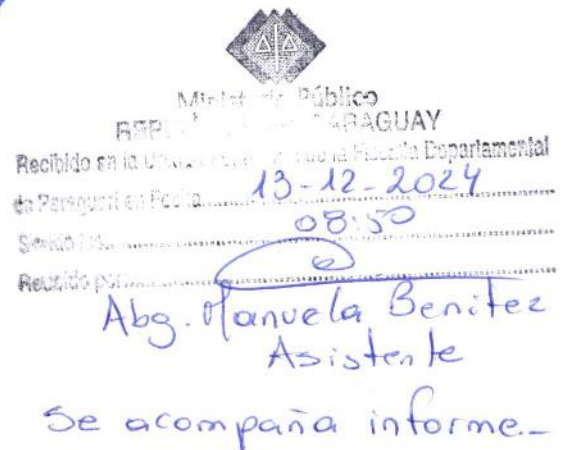 Ministerio Público
REPÚBLICA DEL PARAGUAY
Recibido en la Unidad de la Fiscalía Departamental
de Paraguarí en Fecha 13-12-2024
Siendo las 08:50
Recibido por
Abg. Manuela Benitez
Asistente
Se acompaña informe.-